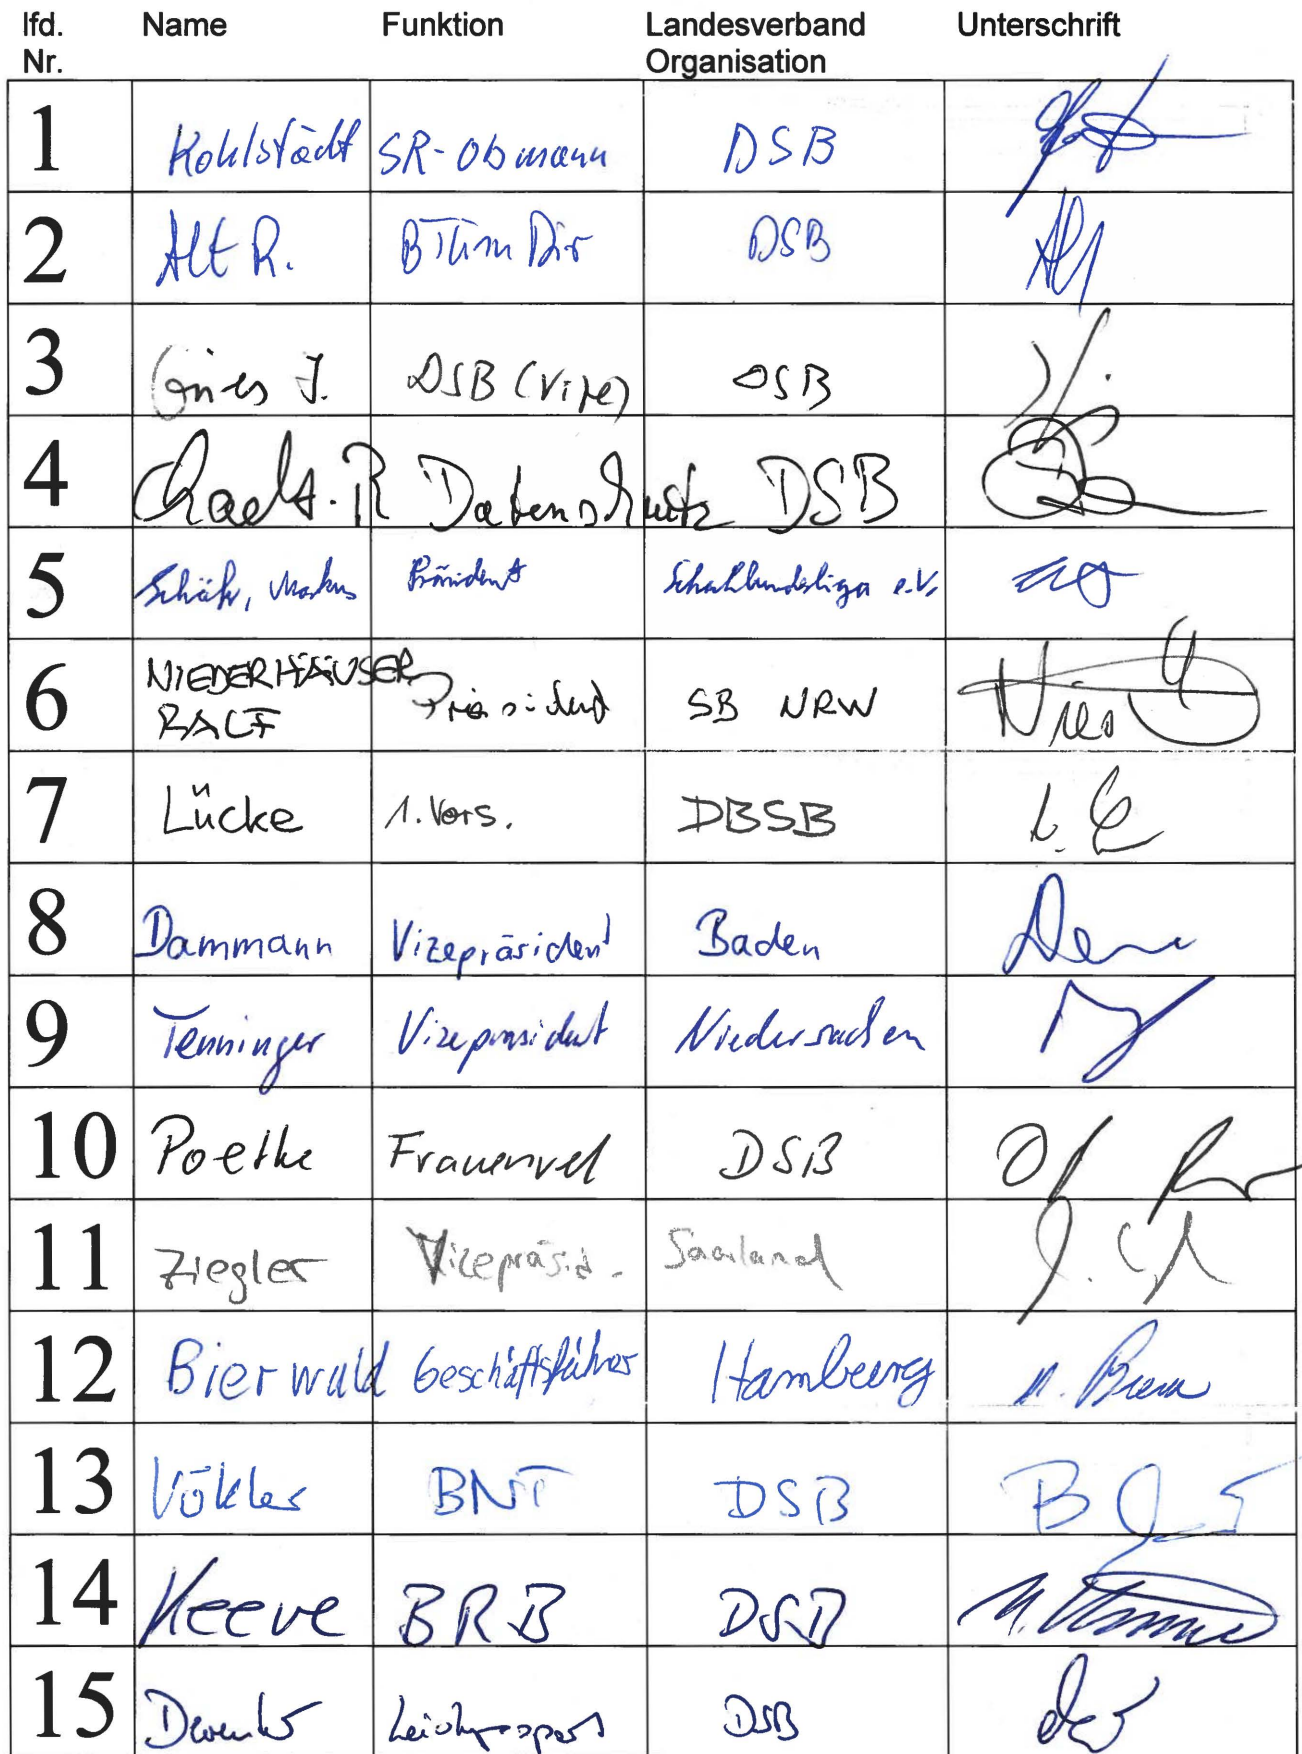 lfd. Nr. Name Funktion Landesverband Organisation Unterschrift
1 Kohlstädt SR-Obmann DSB
2 Alt R. BTurnDir DSB
3 J. DSB (Vize) DSB
4 R Datenschutz DSB
5 Schäfer, Markus Präsident Schachbundesliga e.V.
6 NIEDERHÄUSER RALF Präsident SB NRW
7 Lücke 1. Vors. DBSB
8 Dammann Vizepräsident Baden
9 Tenninger Vizepräsident Niedersachsen
10 Poethe DSB
11 Ziegler Vizepräsid. Saarland
12 Bierwald Geschäftsführer Hamburg
13 Vökler BNT DSB
14 Keeve BRB DSB
15 DSB